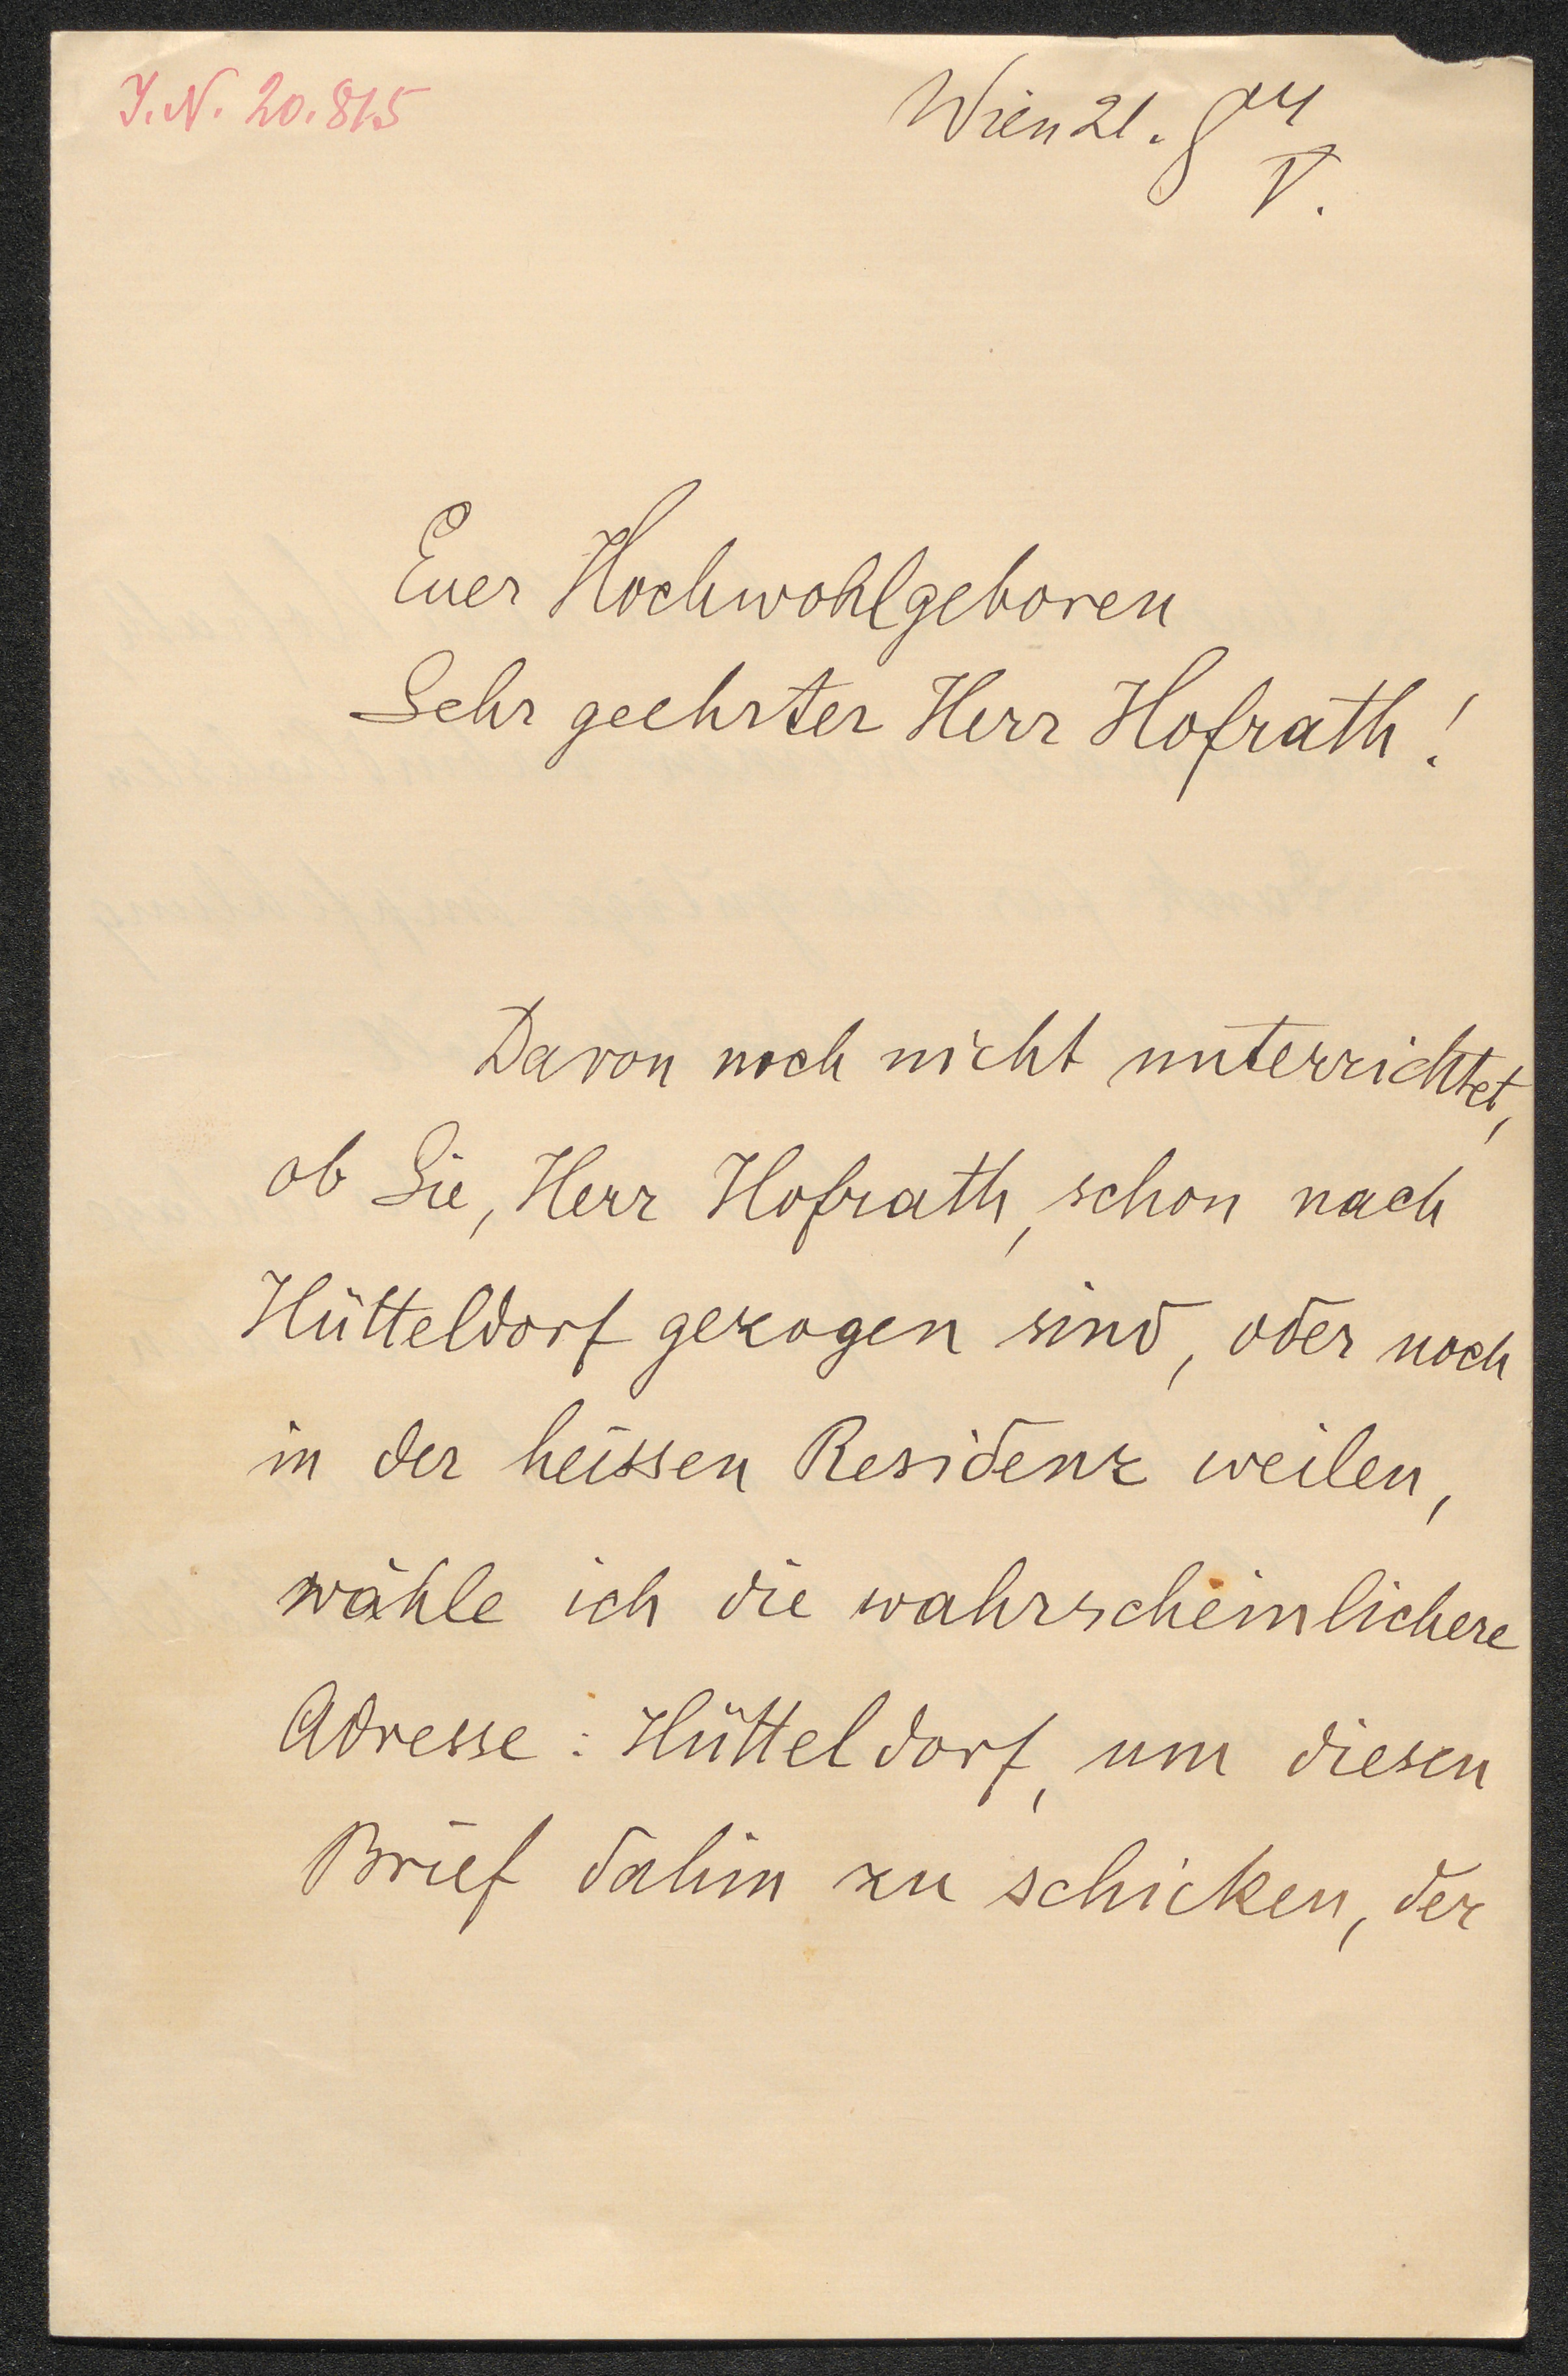 I.N. 20.815
Wien 21.
V.
Euer Hochwohlgeboren
Sehr geehrter Herr Hofrath!
Davon noch nicht unterrichtet,
ob Sie, Herr Hofrath, schon nach
Hütteldorf gezogen sind, oder noch
in der heissen Residenz weilen,
wähle ich die wahrscheinlichere
Adresse: Hütteldorf, um diesen
Brief dahin zu schicken, der